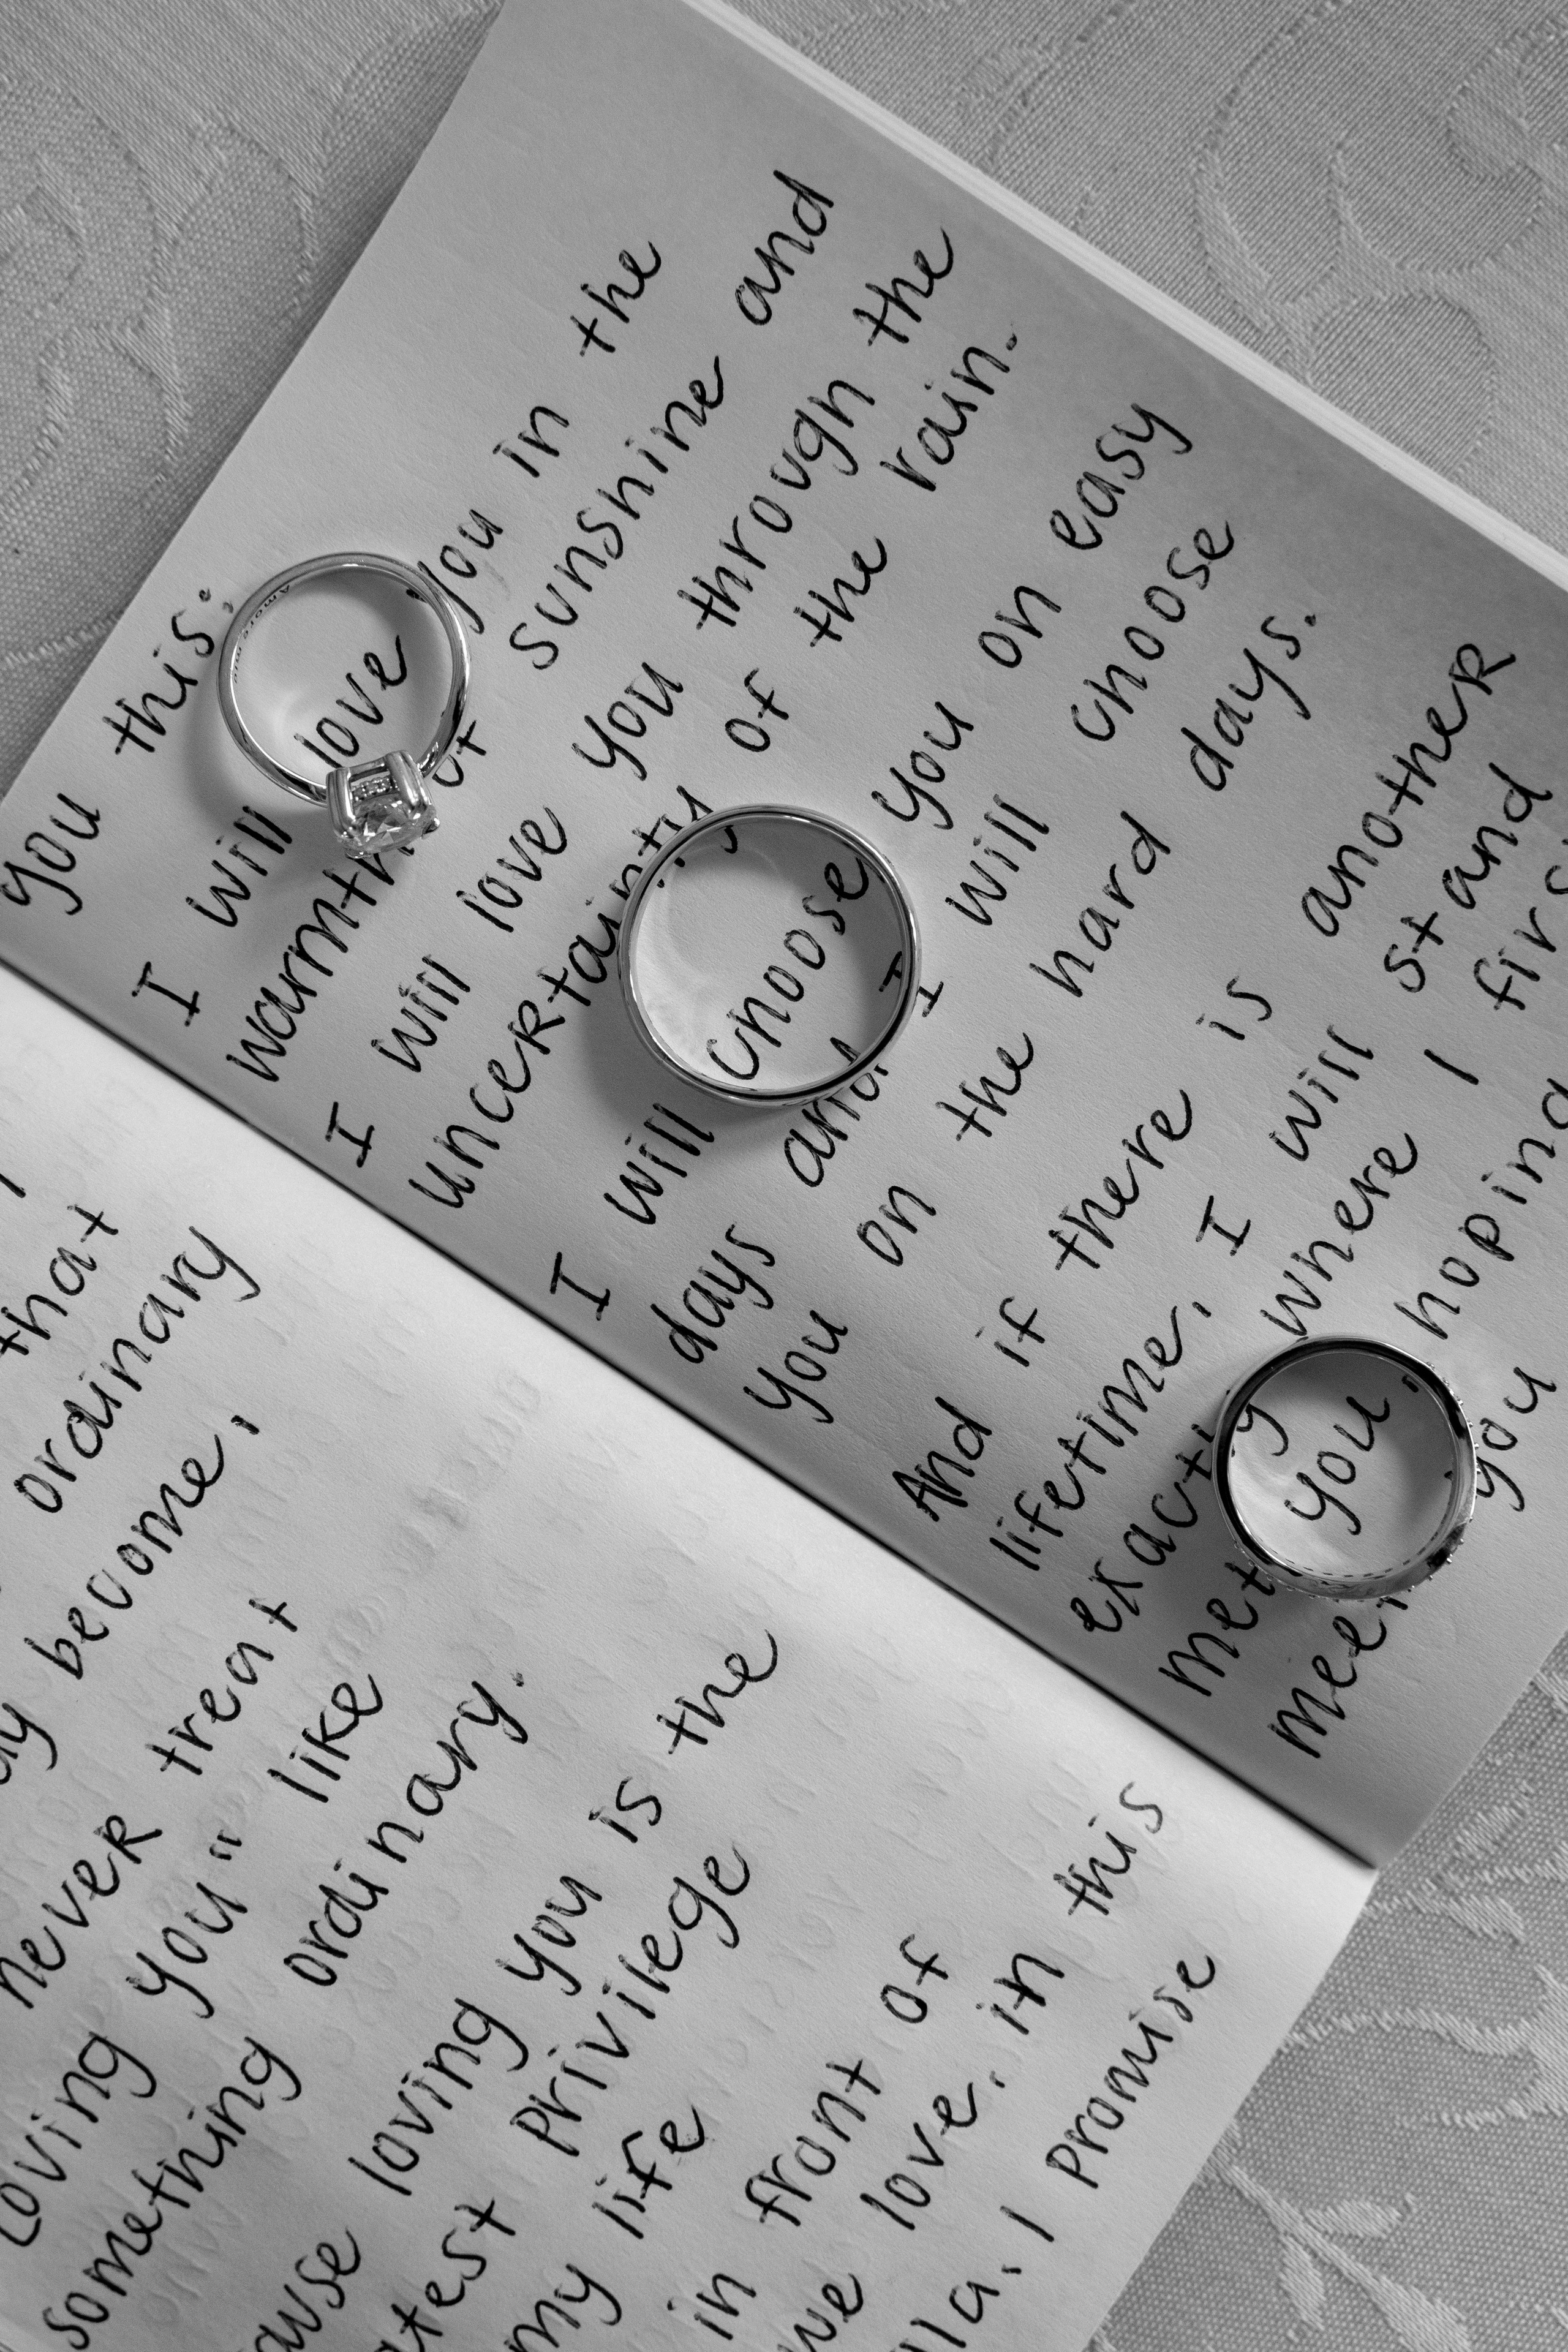 that
ordinary
become,
never treat
loving you" like
something ordinary.
loving you is the
privilege
my life
in front of
we love, in this
I promise
you this:
I will love you in the
warmth of sunshine and
I will love you through the
uncertainty of the rain.
I will choose you on easy
days and I will choose
you on the hard days.
And if there is another
lifetime, I will stand
exactly where I
met you, hoping
meet you
Amore